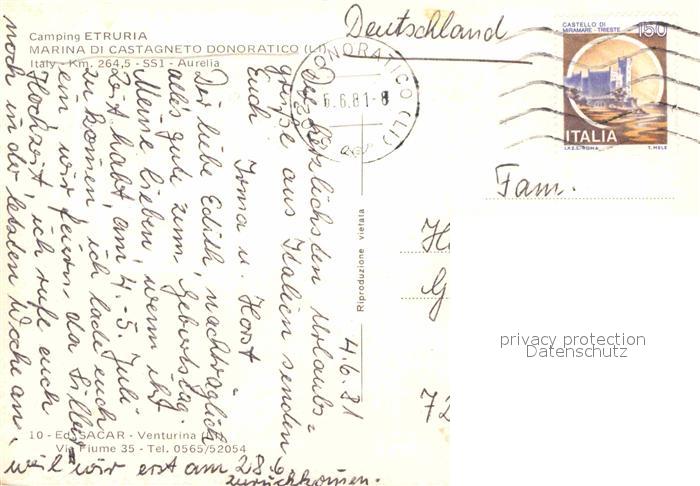 Camping ETRURIA
MARINA DI CASTAGNETO DONORATICO (LI)
Italy - Km. 264,5 - SS1 - Aurelia
Deutschland
DONORATICO (LI)
6.6.81-8
CASTELLO DI
MIRAMARE - TRIESTE
150
ITALIA
I.P.Z.S. ROMA
T. MELE
Fam.
H
G
72
4.6.81
Die herzlichsten Urlaubs=
grüße aus Italien senden
Euch Irma u. Horst
Dir liebe Edith, nachträglich
alles gute zum Geburtstag.
Meine lieben, wenn ihr
Zeit habt, am 4.-5. Juli
zu komen, ich lade euch
ein, wir feiern da Silber
Hochzeit, ich rufe euch
noch in der letzten Woche an,
weil wir erst am 28.6
zurückkomen.
Riproduzione vietata
10 - Ed. SACAR - Venturina
Via Fiume 35 - Tel. 0565/52054
privacy protection
Datenschutz